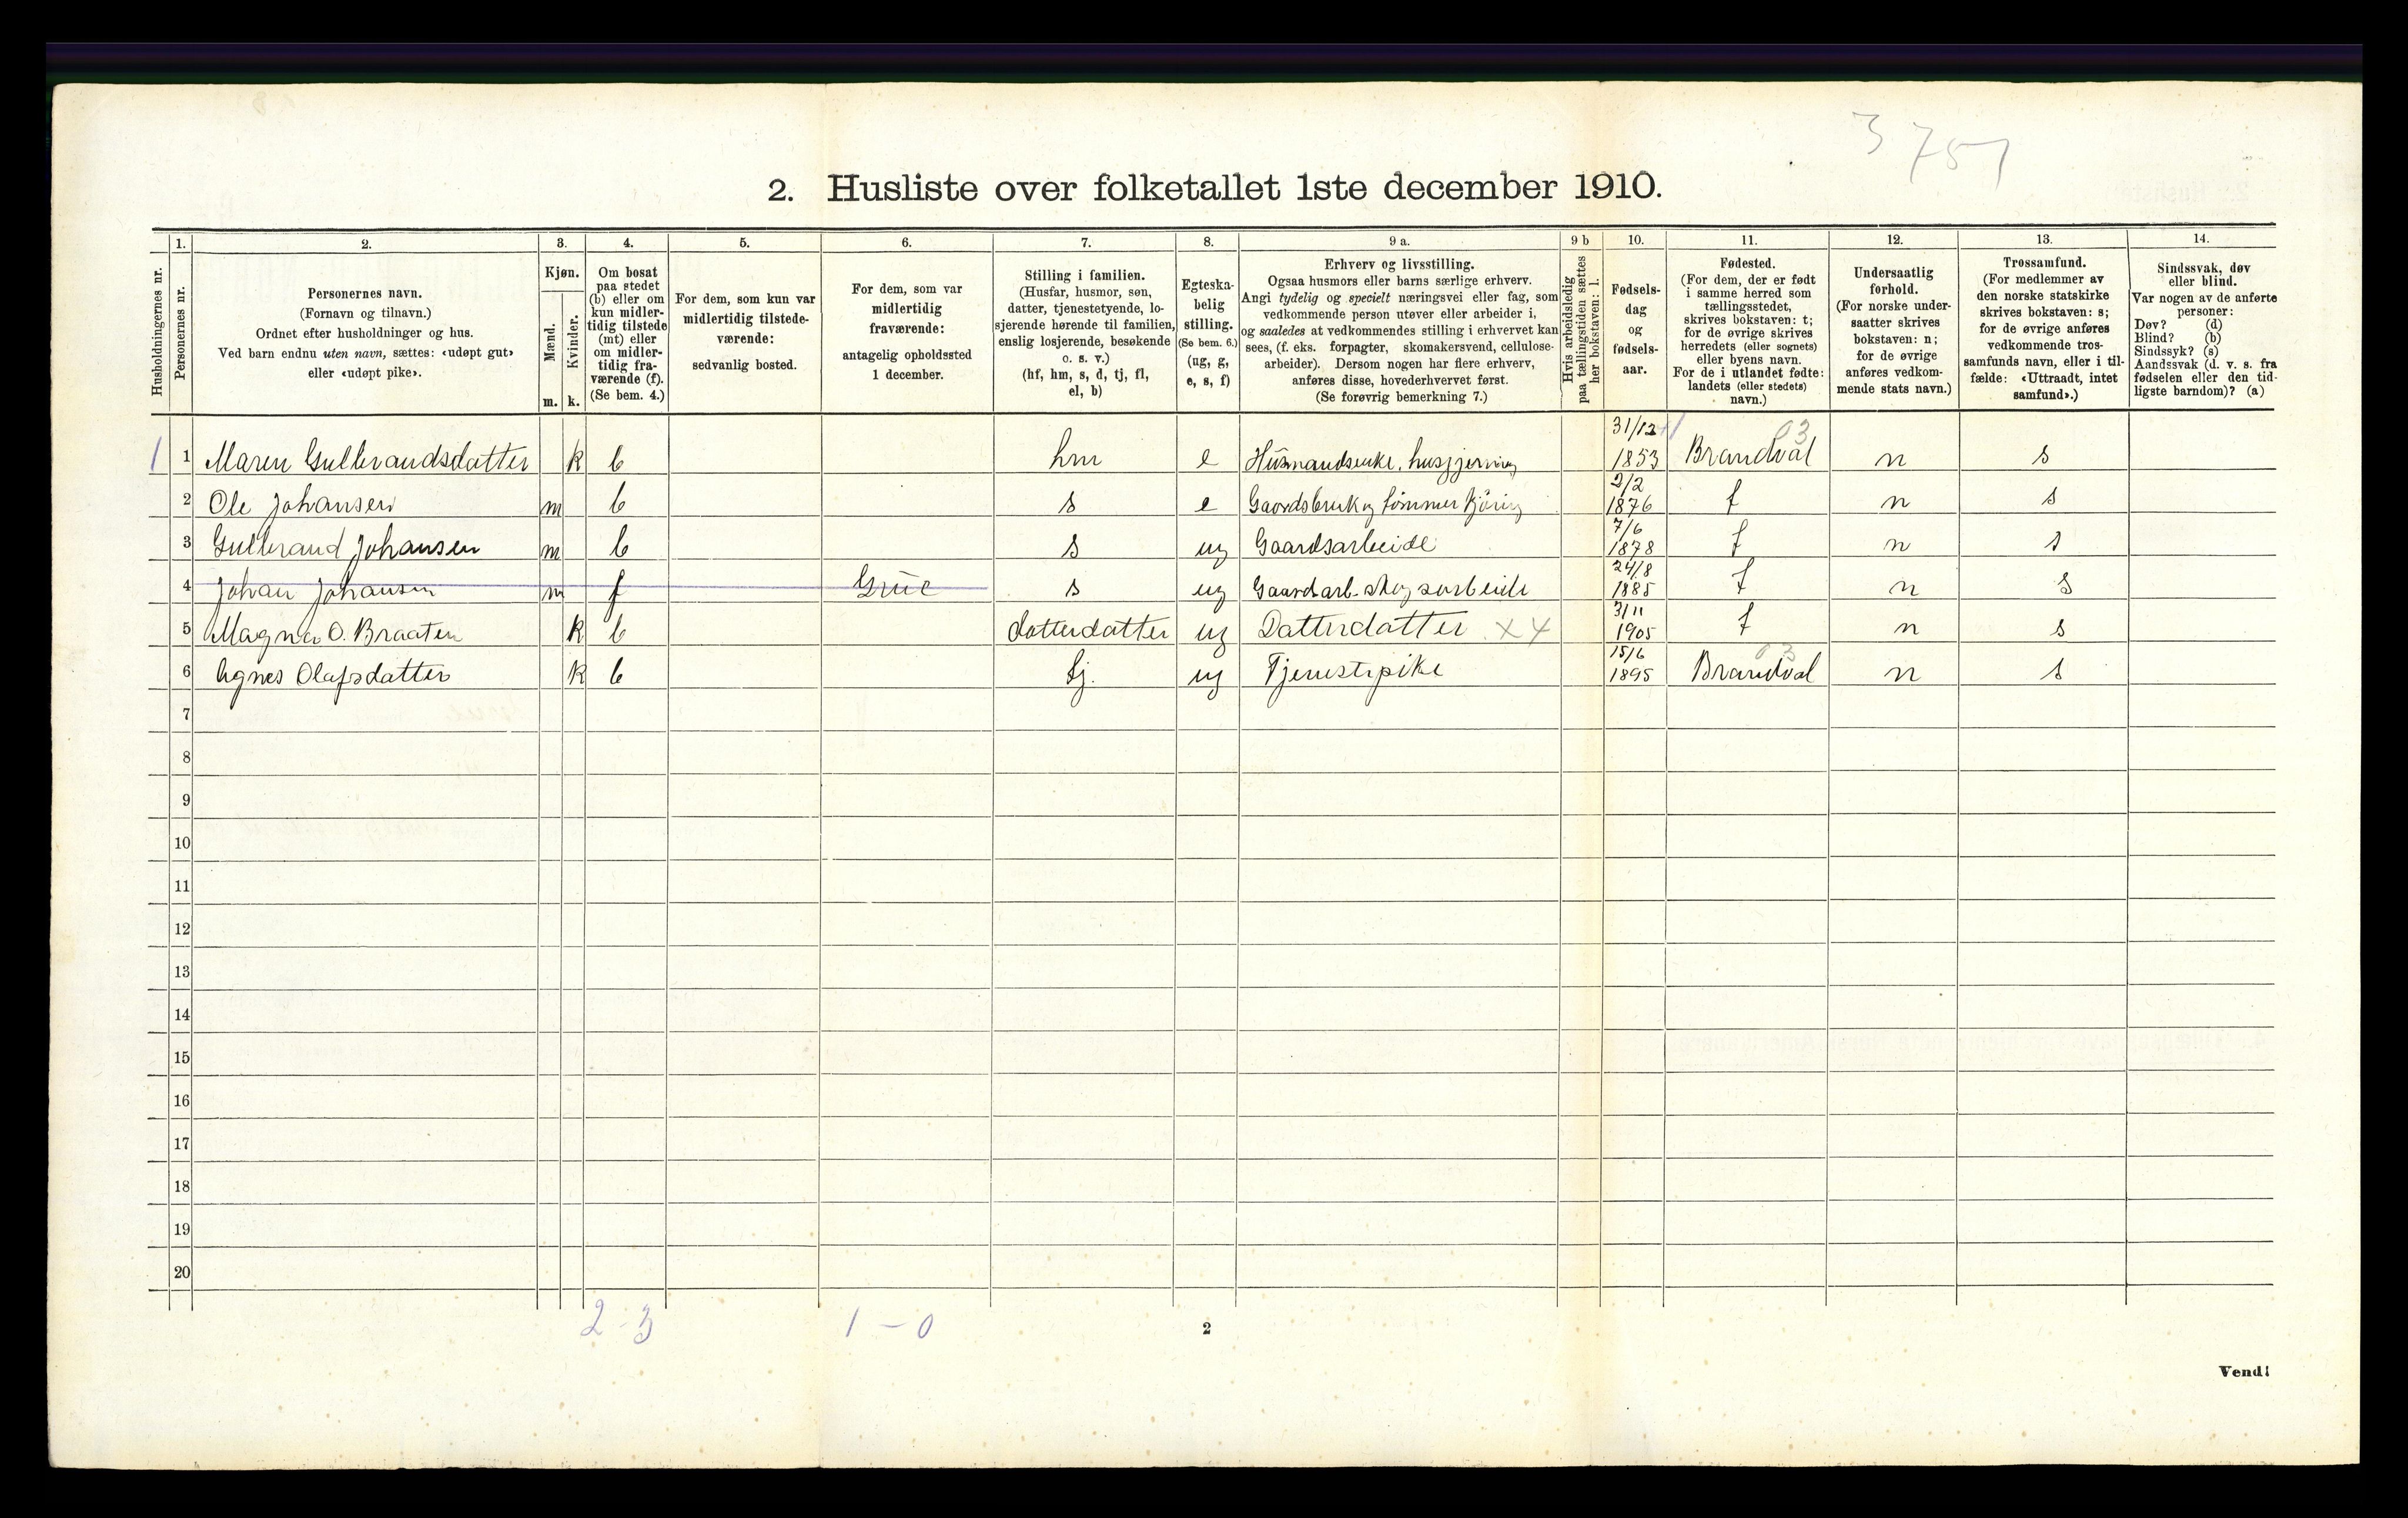 3 751
2. Husliste over folketallet 1ste december 1910.
Husholdningernes nr.
1.
Personernes nr.
2.
Personernes navn.
(Fornavn og tilnavn.)
Ordnet efter husholdninger og hus.
Ved barn endnu uten navn, sættes: «udøpt gut»
eller «udøpt pike».
3.
Kjøn.
Mænd.
Kvinder.
m. k.
4.
Om bosat
paa stedet
(b) eller om
kun midler-
tidig tilstede
(mt) eller
om midler-
tidig fra-
værende (f).
(Se bem. 4.)
5.
For dem, som kun var
midlertidig tilstede-
værende:
sedvanlig bosted.
6.
For dem, som var
midlertidig
fraværende:
antagelig opholdssted
1 december.
7.
Stilling i familien.
(Husfar, husmor, søn,
datter, tjenestetyende, lo-
sjerende hørende til familien,
enslig losjerende, besøkende
o. s. v.)
(hf, hm, s, d, tj, fl,
el, b)
8.
Egteska-
belig
stilling.
(Se bem. 6.)
(ug, g,
e, s, f)
9 a.
Erhverv og livsstilling.
Ogsaa husmors eller barns særlige erhverv.
Angi tydelig og specielt næringsvei eller fag, som
vedkommende person utøver eller arbeider i,
og saaledes at vedkommendes stilling i erhvervet kan
sees, (f. eks. forpagter, skomakersvend, cellulose-
arbeider). Dersom nogen har flere erhverv,
anføres disse, hovederhvervet først.
(Se forøvrig bemerkning 7.)
9 b
Hvis arbeidsledig
paa tællingstiden sættes
her bokstaven: l.
10.
Fødsels-
dag
og
fødsels-
aar.
11.
Fødested.
(For dem, der er født
i samme herred som
tællingsstedet,
skrives bokstaven: t;
for de øvrige skrives
herredets (eller sognets)
eller byens navn.
For de i utlandet fødte:
landets (eller stedets)
navn.)
12.
Undersaatlig
forhold.
(For norske under-
saatter skrives
bokstaven: n;
for de øvrige
anføres vedkom-
mende stats navn.)
13.
Trossamfund.
(For medlemmer av
den norske statskirke
skrives bokstaven: s;
for de øvrige anføres
vedkommende tros-
samfunds navn, eller i til-
fælde: «Uttraadt, intet
samfund».)
14.
Sindssvak, døv
eller blind.
Var nogen av de anførte
personer:
Døv? (d)
Blind? (b)
Sindssyk? (s)
Aandssvak (d. v. s. fra
fødselen eller den tid-
ligste barndom)? (a)
1 1 Maren Gulbrandsdatter k b hm e Husmandsenke, husgjerning 31/12 1853 Brandval 03 n s
2 Ole Johansen m b s e Gaardsbruk og tømmerkjöring 2/2 1876 t n s
3 Gulbrand Johansen m b s ug Gaardsarbeide 7/6 1878 t n s
4 Johan Johansen m f Grue s ug Gaardarb. skogsarbeide 24/8 1885 t n s
5 Magna O. Braaten k b datterdatter ug Datterdatter x4 3/11 1905 t n s
6 Agnes Olafsdatter k b tj. ug Tjenestepike 15/6 1895 Brandval 03 n s
7
8
9
10
11
12
13
14
15
16
17
18
19
20
2-3 1-0
2
Vend!